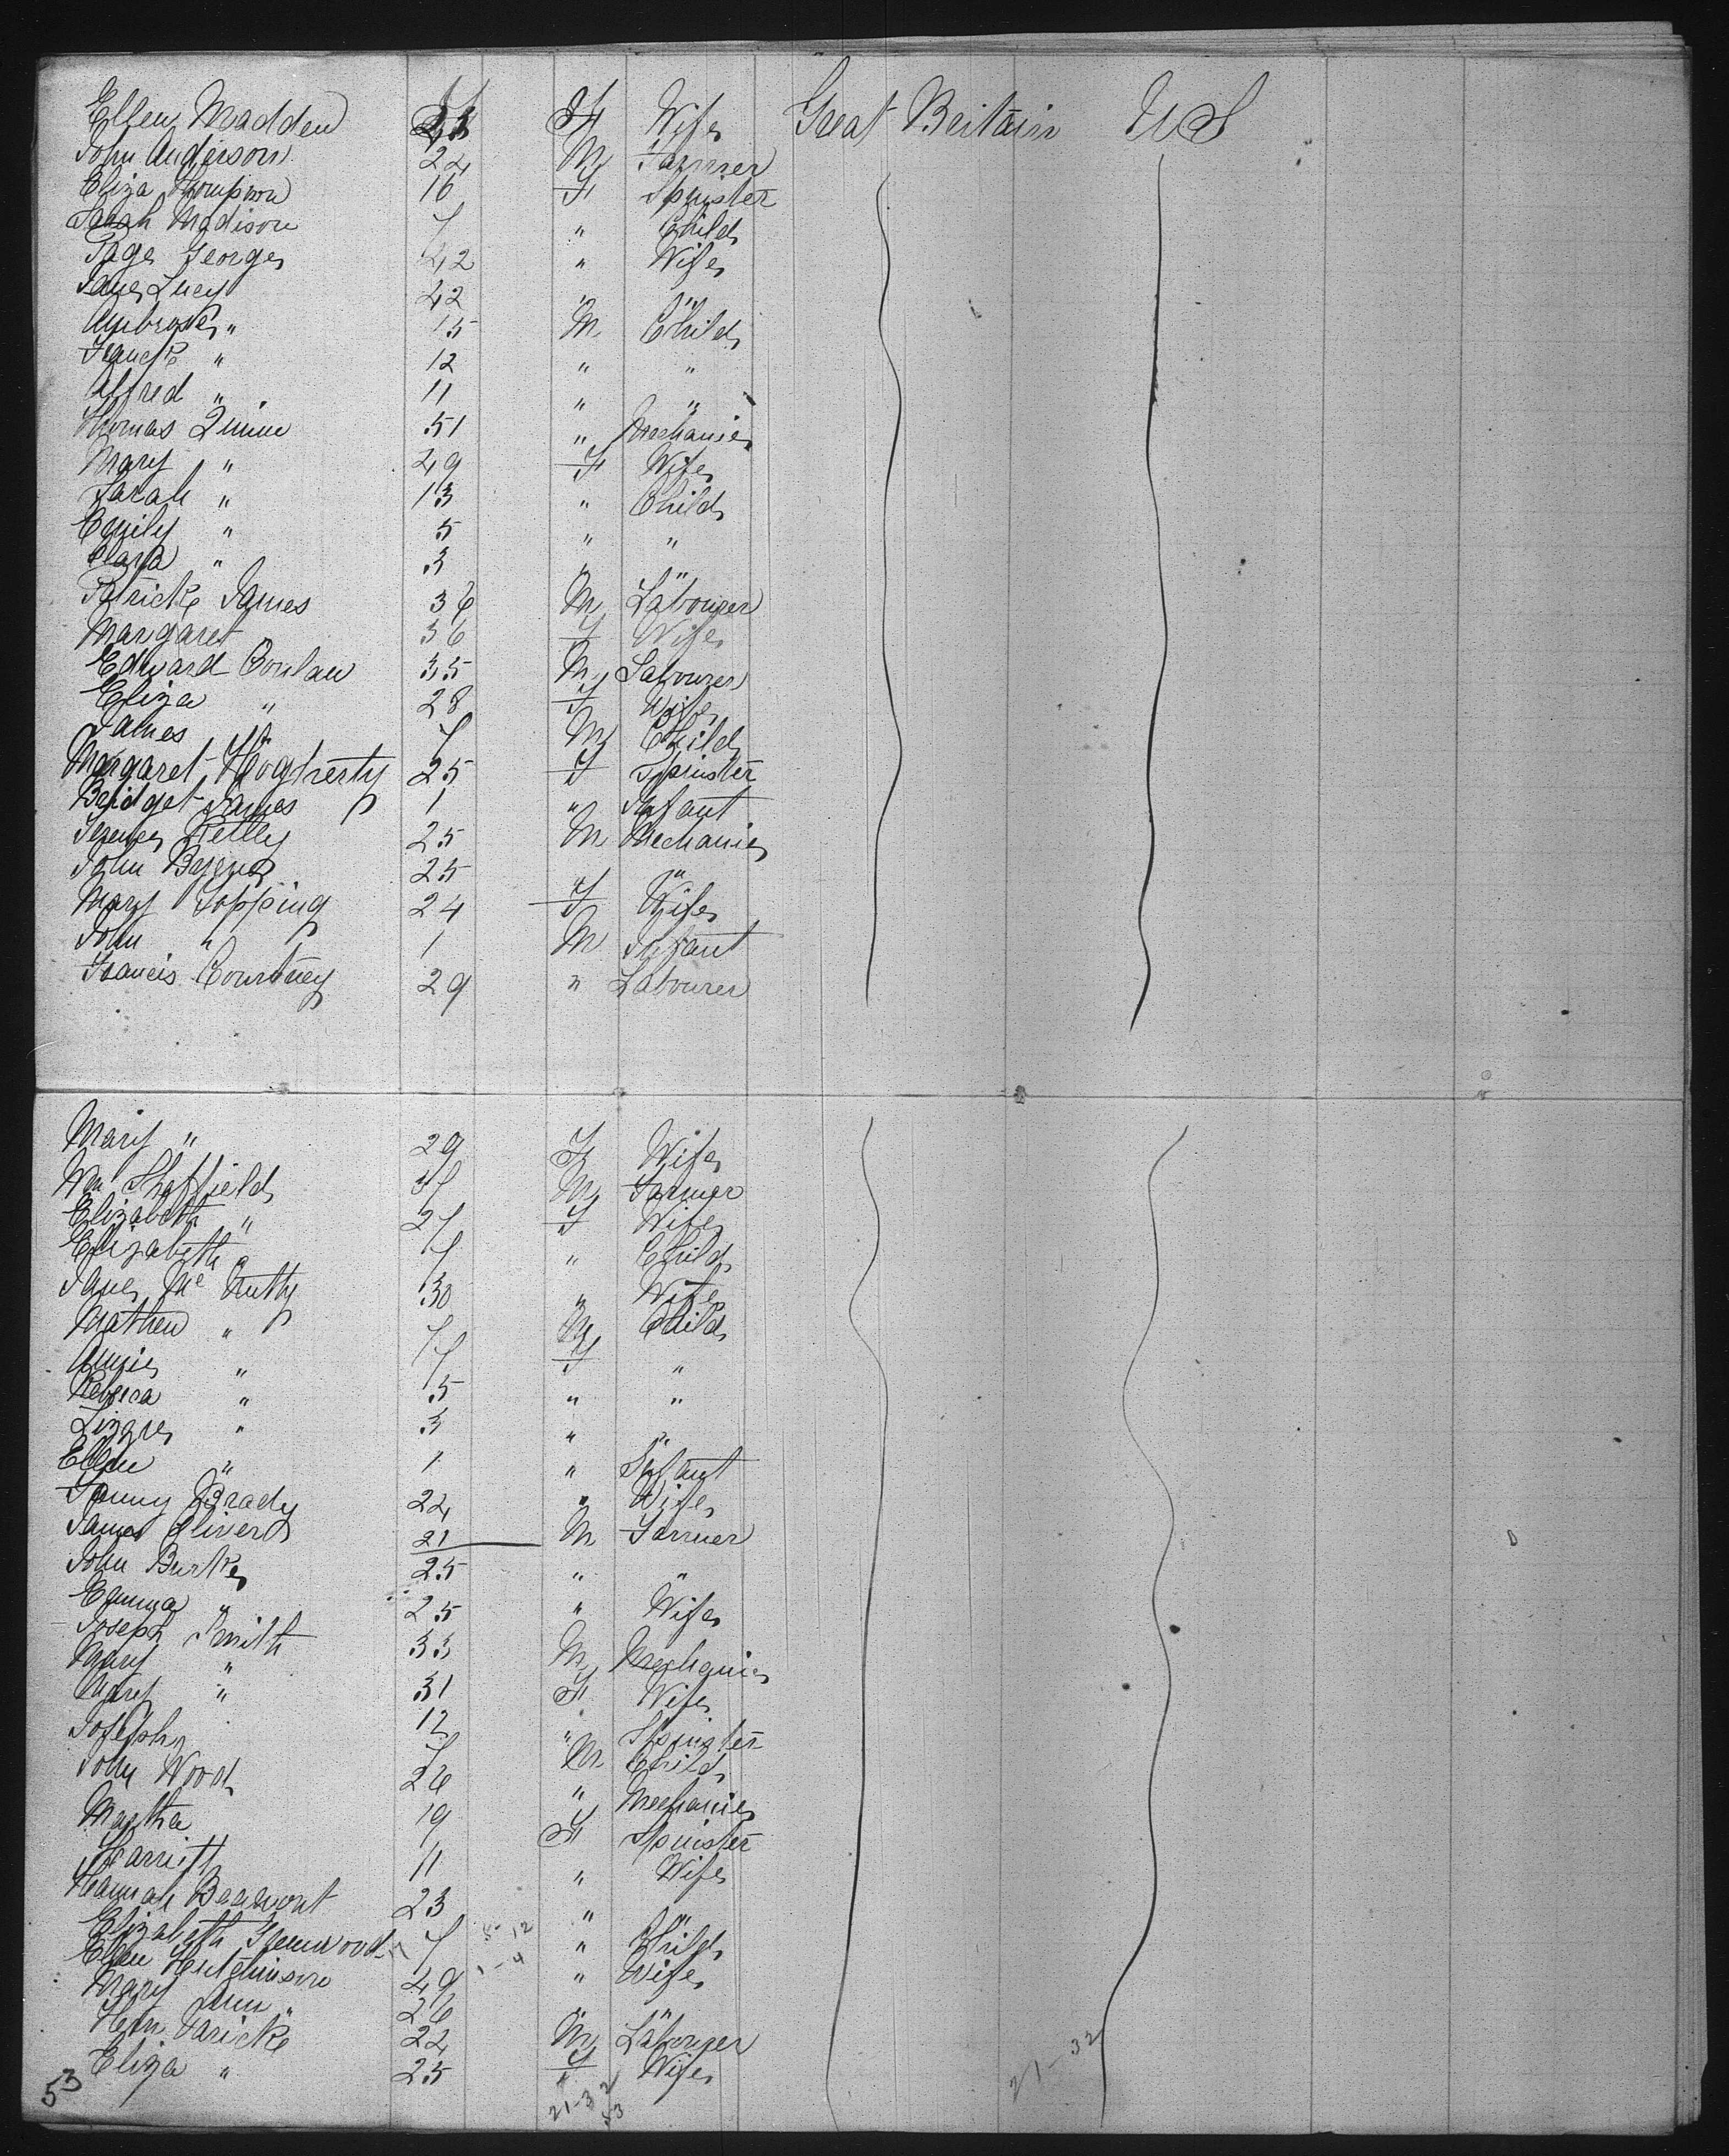 Ellen Madden F Wife Great Britain U S
John Anderson 24 M Farmer
Eliza Thompson 16 F Spinster
Sarah Madison 7 " Child
Page George 42 " Wife
Jane Lucy 42 " "
Ambrose " 15 M Child
Franck " 12 " "
Alfred " 11 " "
Thomas Quinn 51 " Mechanic
Mary " 49 F Wife
Sarah " 13 " Child
Emily " 5 " "
Clara " 3 " "
Patrick James 36 M Labourer
Margaret 36 F Wife
Edward Conlan 35 M Labourer
Eliza " 28 F Wife
James " 7 M Child
Margaret Hogherty 25 F Spinster
Bridget James 1 " Infant
Terence Kelly 25 M Mechanic
John 25 " "
Mary Topping 24 F Wife
John " 1 M Infant
Francis Courtney 29 " Labourer
Mary " 29 F Wife
Wm Sheffield 37 M Farmer
Elizabeth " 27 F Wife
Elizabeth " 7 " Child
Jane Mc Nutty 30 " Wife
Mathew " M Child
Annie " 7 F "
Rebecca " 5 " "
Lizzie " 3 " "
Ellen " 1 " Infant
Fanny Brady 24 " Wife
James Oliver 21 M Farmer
John Burke 25 " "
Emma " 25 " Wife
Joseph Smith 33 M Mechanic
Mary " 31 F Wife
Mary " 12 " Spinster
Joseph " 7 M Child
John Wood 26 " Mechanic
Martha 19 F Spinster
Harriet 11 " Wife
Hannah Beaumont 23 " "
Elizabeth Greenwood 7 5-12 " Child
Ellen Hutchinson 49 1-4 " Wife
Mary Ann " 26 " "
Hen 24 M Labourer
Eliza " 25 F Wife
53 21-32 53 21-32